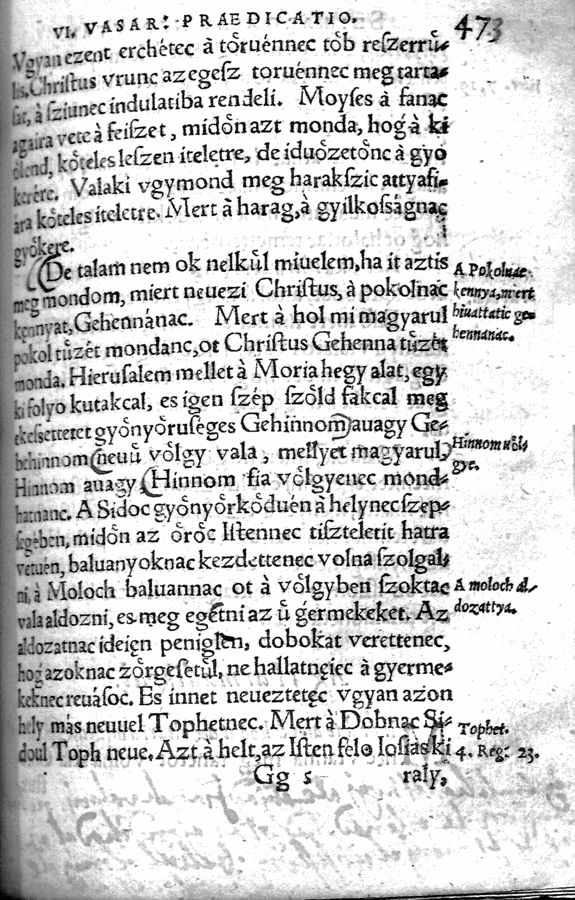 VI. VASAR: PRAEDICATIO.
473
Vgyan ezent erchétec à tỏruénnec tỏb reſzerrű⸗
lis. Chriſtus vrunc az egeſz toruénnec meg tarta⸗
ſat, à ſziunec indulatiba rendeli. Moyſes à fanac
agaira vete à feiſzet, midỏn azt monda, hog à ki
ỏlend, kỏteles leſzen iteletre, de iduỏzetỏnc à gyỏ
kerére. Valaki vgymond meg harakſzic attyafi⸗
ára kỏteles iteletre. Mert à harag, à gyilkoſságnac
gyỏkere.
De talam nem ok nelkűl miuelem, ha it aztis
meg mondom, miert neuezi Chriſtus, à pokolnac
kennyat, Gehennánac. Mert à hol mi magyarul
pokol tűzét mondanc, ot Chriſtus Gehenna tűzét
monda. Hieruſalem mellet à Moria hegy alat, egy
ki folyo kutakcal, es igen ſzép ſzỏld fakcal meg
ekeſsettetet gyỏnyỏruſeges Gehinnom auagy Ge⸗
behinnom neuű vỏlgy vala, mellyet magyarul,
Hinnom auagy Hinnom fia vỏlgyenec mond⸗
hatnanc. A Sidoc gyỏnyỏrkỏduén à helynec ſzep⸗
ſegeben, midỏn az ỏrỏc Iſtennec tiſzteletit hatra
vetuén, baluanyoknac kezdettenec volna ſzolgal⸗
ni, à Moloch baluannac ot à vỏlgyben ſzoktac
vala aldozni, es meg egétni az ű gérmekeket. Az
aldozatnac ideięn peniglen, dobokat verettenec,
hog azoknac zỏrgeſetűl, ne hallatnęiec à gyerme⸗
keknec reuáſoc. Es innet neueztetęc vgyan azon
hely más neuuel Tophetnec. Mert à Dobnac Si⸗
doul Toph neue. Azt à helt, az Iſten felỏ Ioſiás ki
Gg 5 raly,
A Pokolnac
kennya, mert
hiuattatic ge⸗
hennanac.
Hinnom vỏl⸗
gye.
A moloch al⸗
dozattya.
Tophet.
4. Reg: 23.